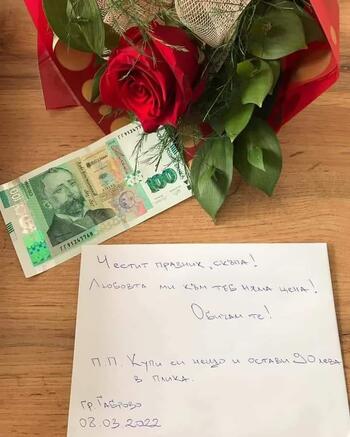 100
100
ГГ9124?769
Честит празник, скъпа!
Любовта ми към теб няма цена!
Обичам те!
П.П. Купи си нещо и остави 90 лева
в плика.
гр. Габрово
08.03.2022